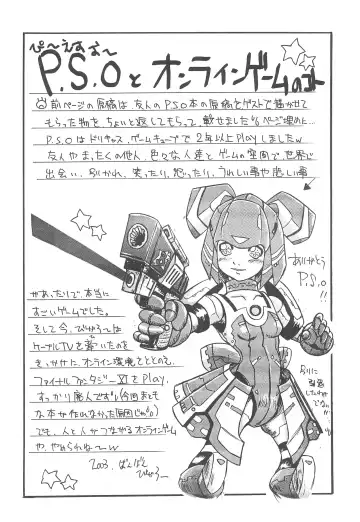 ぴ〜えすお〜
P.S.Oと オンラインゲームのコト
前ページの原稿は、友人のPSO本の原稿をゲストで描かせて
もらった物を、ちょいと返してもらって、載せました(ページ埋めに…
P.S.Oはドリキャス、ゲームキューブで2年以上Playしましたw
友人やまったくの他人、色々な人達とゲームの空間で世界で
出会い、別れ、笑ったり、怒ったり、うれしい事や悲しい事
があったりで、本当に
すごいゲームでした。
そして今、びゅうは
ケーブルTVを繋いだのを
きっかけに、オンライン環境をととのえ、
ファイナルファンタジーXIをPlay、
すっかり廃人です
(今回まとも
な本が作れなかった原因じゃ
でも、人と人がつながるオンラインゲーム
や、やめられね〜w
2003. ばんばん
ありがとう
P.S.O
!!
別に
引退
したわけ
でない
!!